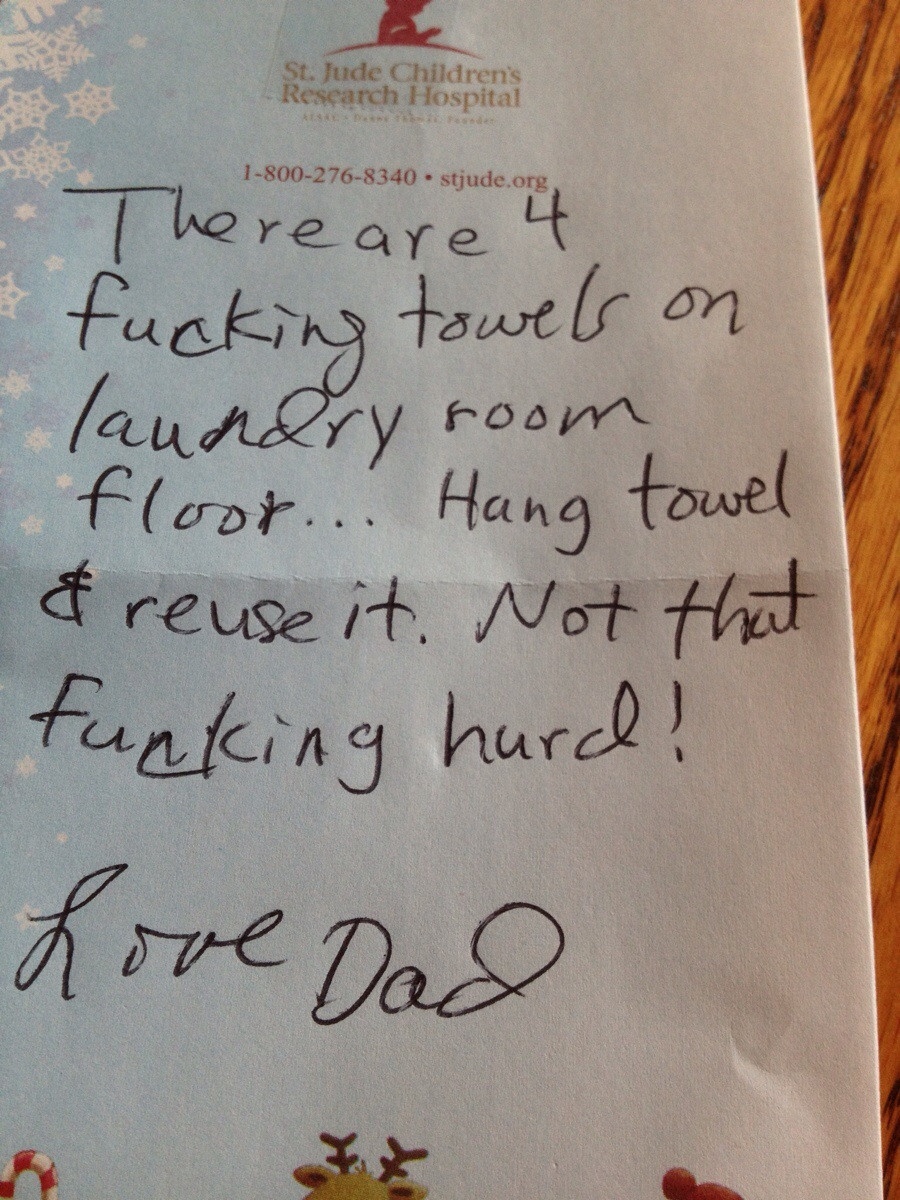 St. Jude Children's
Research Hospital
ALSAC • Danny Thomas, Founder
1-800-276-8340 • stjude.org
There are 4
fucking towels on
laundry room
floor... Hang towel
& reuse it. Not that
fucking hard!
Love Dad